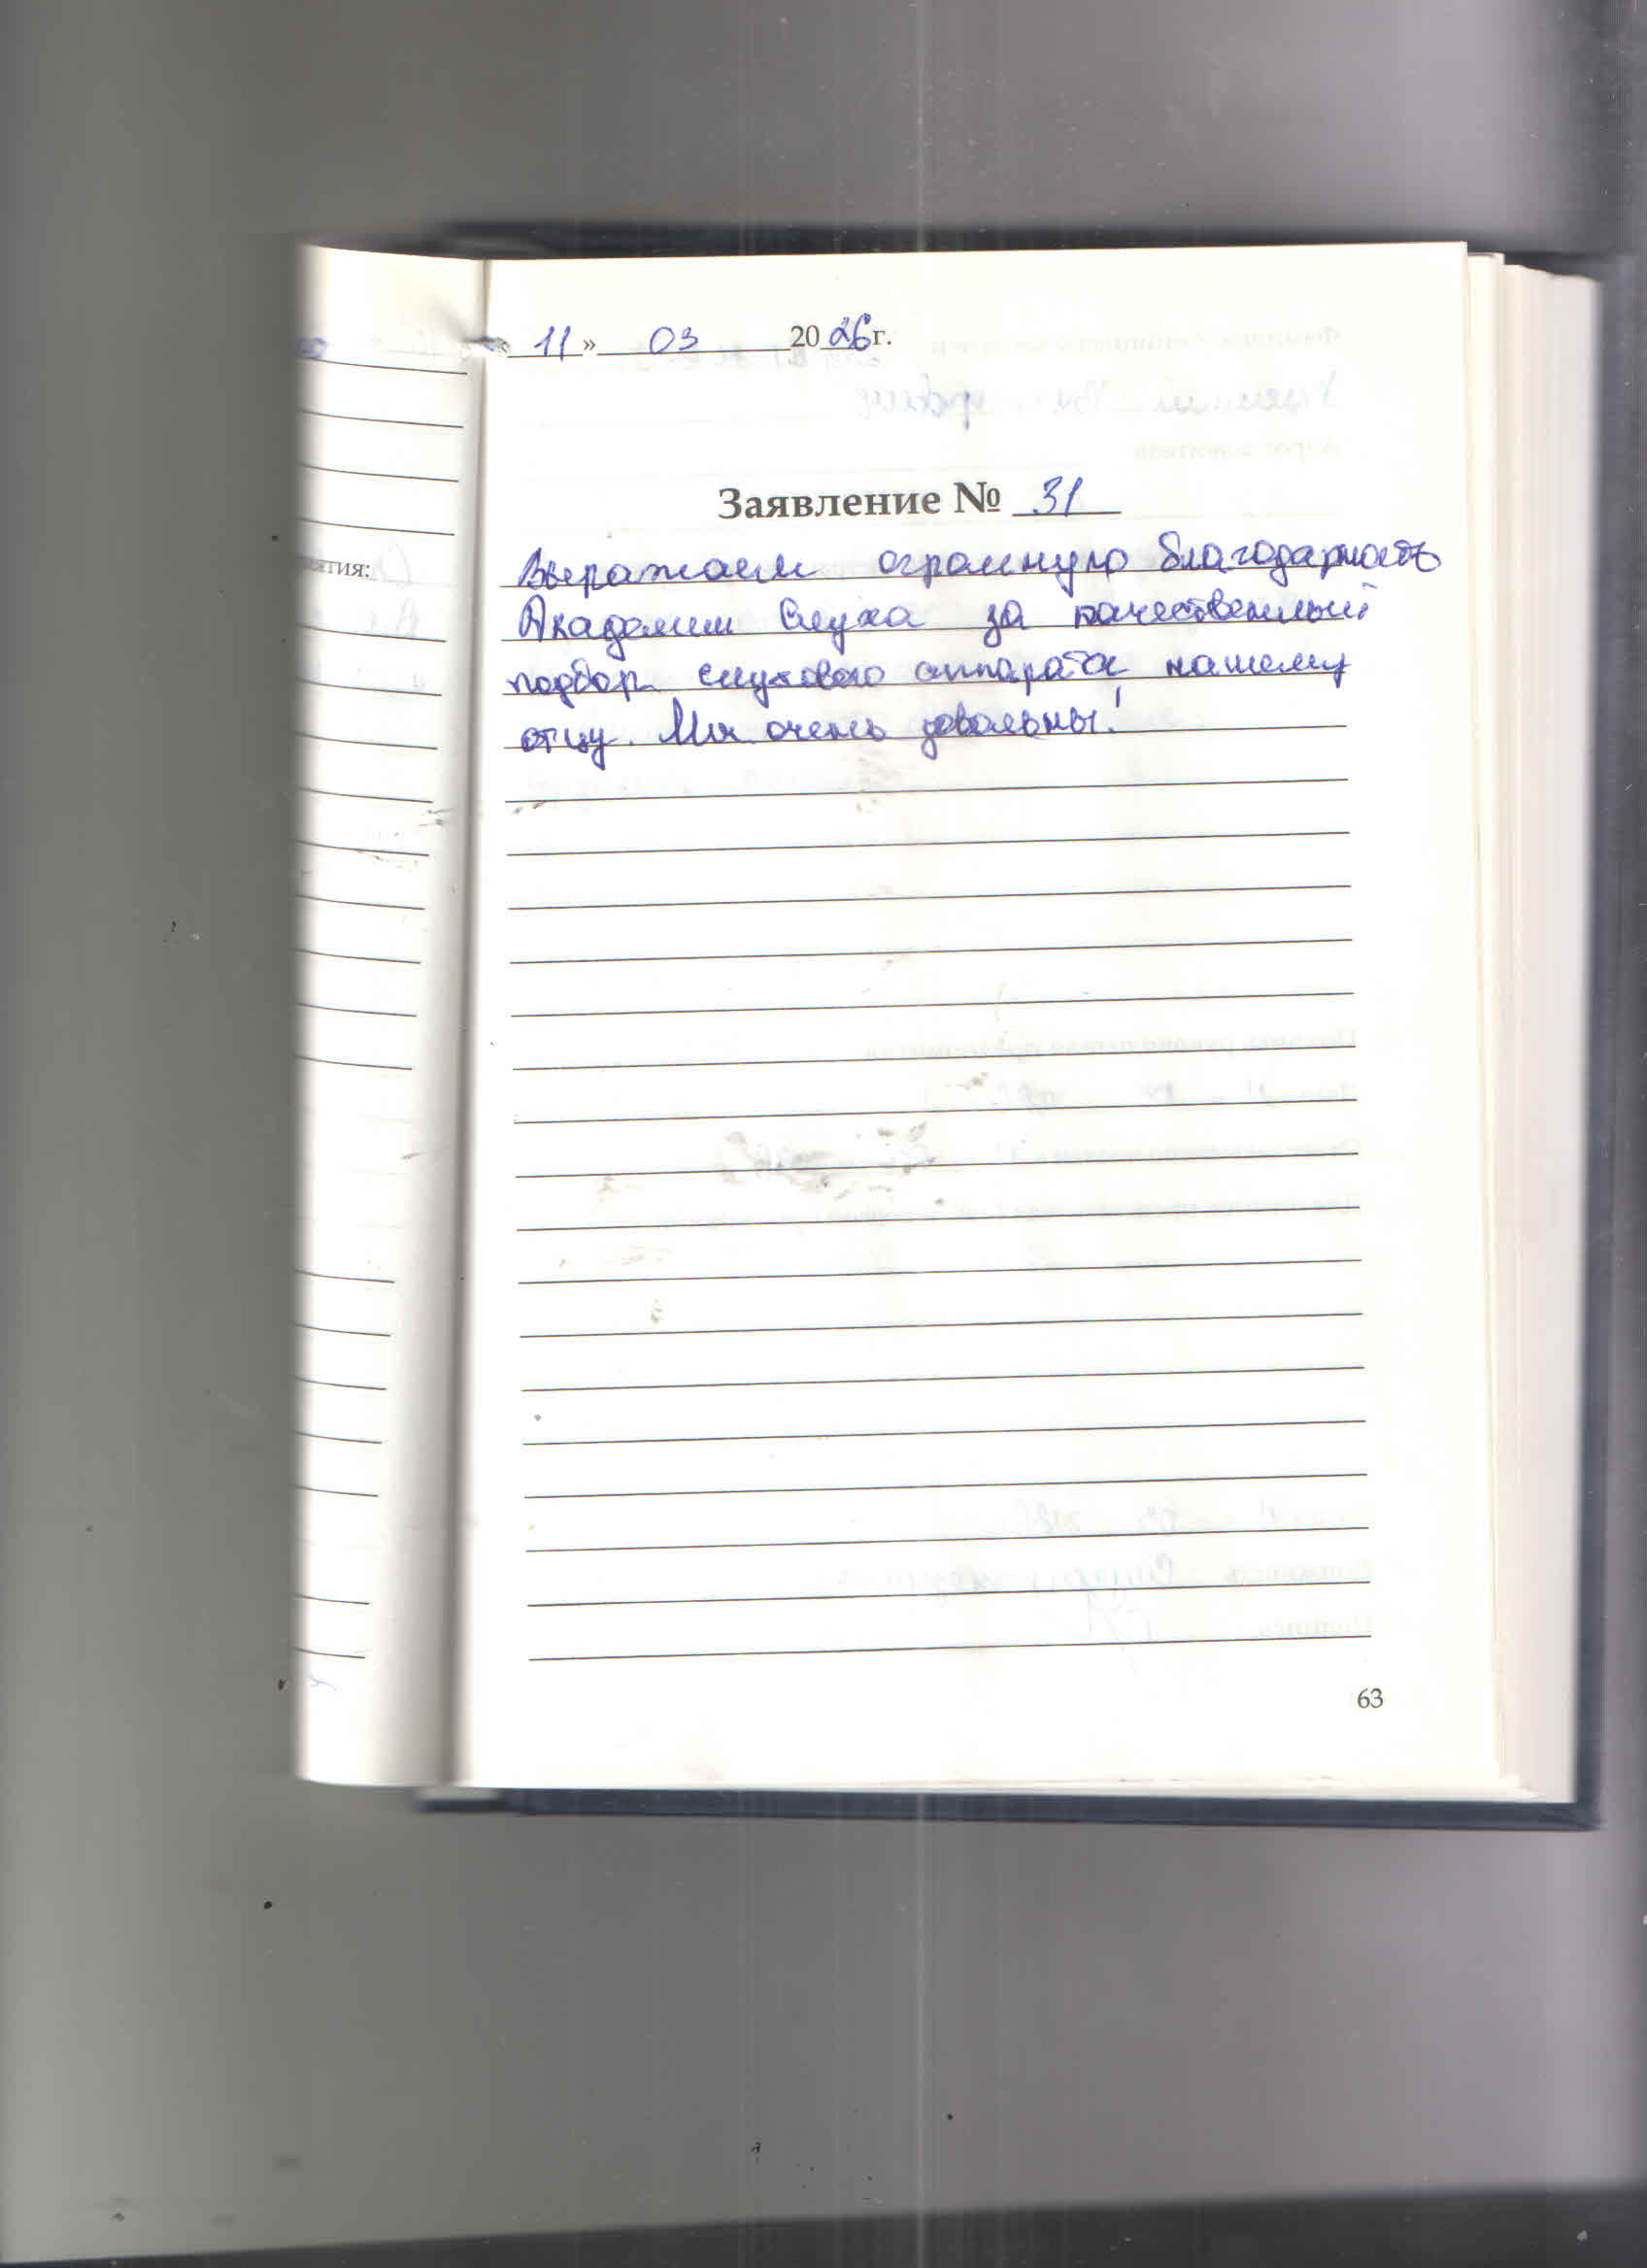 11 » 03 2026 г.
Заявление № 31
Выражаем огромную благодарность
Академии Слуха за качественный
подбор слухового аппарата нашему
отцу. Мы очень довольны!
ятия:
63